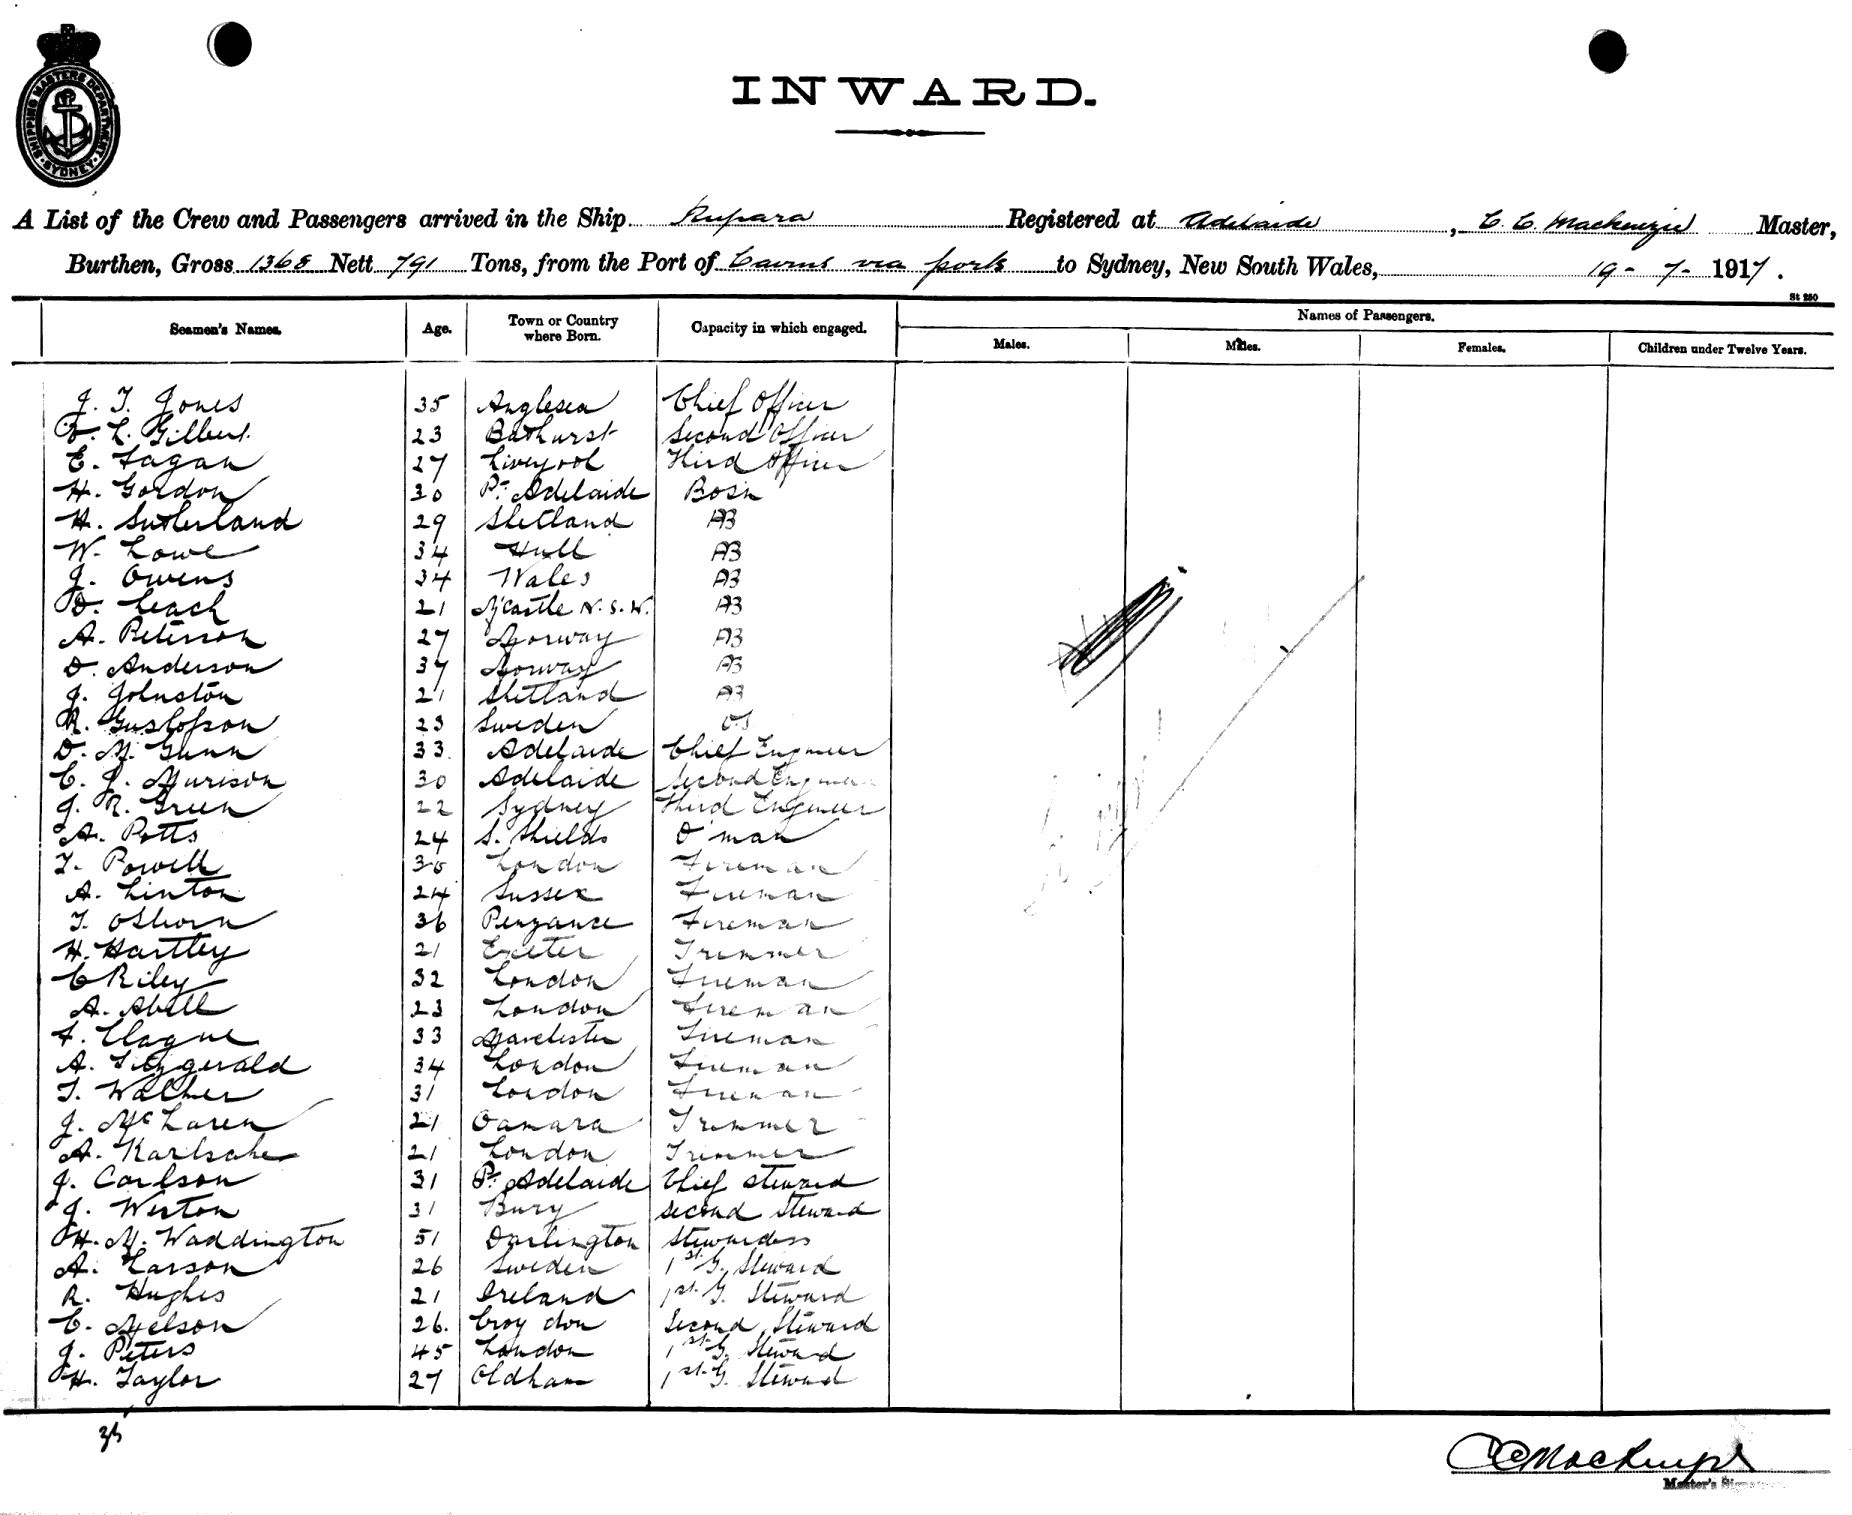 SHIPPING MASTERS DEPARTMENT · SYDNEY ·
INWARD.
A List of the Crew and Passengers arrived in the Ship Rupara Registered at Adelaide, C. C. Mackenzie Master,
Burthen, Gross 1368 Nett 791 Tons, from the Port of Cairns via ports to Sydney, New South Wales, 19 - 7 - 1917.
St 250
Seamen's Names. Age. Town or Country where Born. Capacity in which engaged. Names of Passengers.
Males. Males. Females. Children under Twelve Years.
J. T. Jones 35 Anglesea Chief Officer
L. Gilbert 23 Bathurst Second Officer
E. Fagan 27 Liverpool Third Officer
H. Gordon 30 Pt Adelaide Bosn
H. Sutherland 29 Shetland AB
W. Lowe 34 Hull AB
J. Owens 34 Wales AB
D. Leach 21 N'castle N.S.W. AB
A. Peterson 27 Norway AB
D. Anderson 37 Norway AB
J. Johnston 21 Shetland AB
R. Gustofson 23 Sweden OS
D. M. Gunn 33 Adelaide Chief Engineer
C. J. Murison 30 Adelaide Second Engineer
J. R. Green 22 Sydney Third Engineer
A. Potts 24 S. Shields D'man
T. Powell London Fireman
A. Linton 24 Sussex Fireman
T. Osborn 36 Penzance Fireman
H. Hartley 21 Exeter Trimmer
C Riley 32 London Fireman
A. Abell 23 London Fireman
F. Clague 33 Manchester Fireman
A. Fitzgerald 34 London Fireman
T. Walker 31 London Fireman
J. McLaren 21 Oamara Trimmer
A. 21 London Trimmer
J. Carlson 31 Pt Adelaide Chief Steward
J. Weston 31 Bury Second Steward
H. M. Waddington 51 Darlington Stewardess
A. Larson 26 Sweden 1st G. Steward
R. Hughes 21 Ireland 1st G. Steward
C. Nelson 26. Croydon Second Steward
J. Peters 45 London 1st G. Steward
H. Taylor 27 Oldham 1st G. Steward
35
CC Mackenzie
Master's